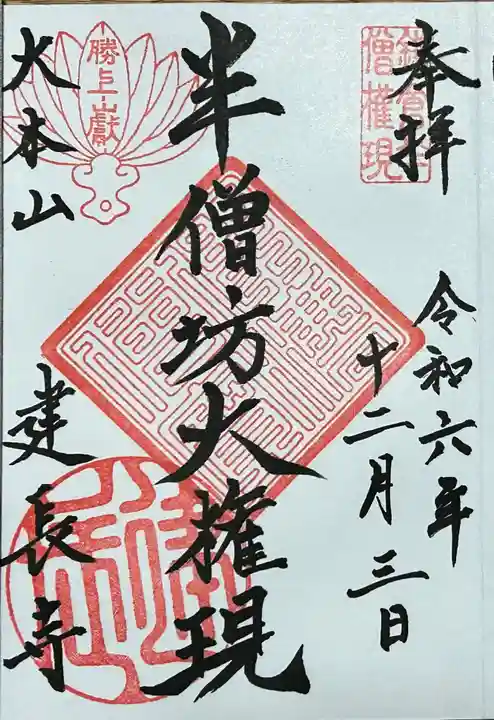 奉拝
令和六年
十二月三日
半僧坊大権現
勝上嶽
大本山
建長寺